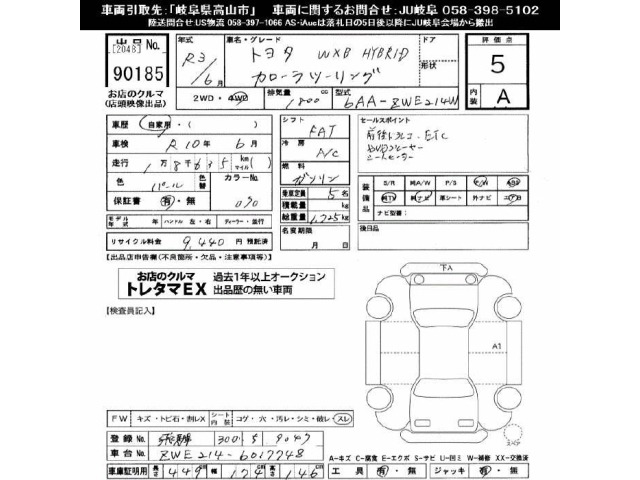 車両引取先:「岐阜県高山市」 車両に関するお問合せ:JU岐阜 058-398-5102
陸送問合せ:US物流 058-397-1066 AS-iAucは落札日の5日後以降にJU岐阜会場から搬出
出品No. [2048] 90185
お店のクルマ
(店頭映像出品)
年式 R3/6月
車名・グレード トヨタ WXB HYBRID
カローラツーリング
ドア 形状
評価点 5
内装 A
2WD・4WD
排気量 1800 cc
型式 6AA-ZWE214W
車歴 自家用・( )
車検 R10年 6月
走行 1万8千635 km(マイル)
色 パール 色替 カラーNo. 070
保証書 有・無
モデル年式 年 ハンドル 左・右 ディーラー・並行
リサイクル料金 9,440円 預託済
シフト FAT
冷房 A/C
燃料 ガソリン
乗車定員 5名
積載量 kg
総重量 1,725kg
名変期限 月 日
セールスポイント
前後ドラレコ ETC
シートヒーター
装備品 S/R 純A/W P/S P/W ABS
純TV 純ナビ 革シート 外ナビ エアB
ナビ型番:
後日品
【出品店申告欄(不良箇所・欠品・注意事項等)】
お店のクルマ
トレタマEX
過去1年以上オークション
出品歴の無い車両
【検査員記入】
下A
A1
スペア
FW キズ・トビ石・割レX
シート内装 コゲ・穴・汚レ・シミ・破レ・スレ
登録No. 飛騨 300 す 9047
車台No. ZWE214-6017748
車庫証明用 長さ 449cm 幅 174cm 高さ 146cm
A-キズ C-腐食 E-エクボ S-サビ U-凹ミ W-補修 XX-交換済
工具 有・無 ジャッキ 有・無